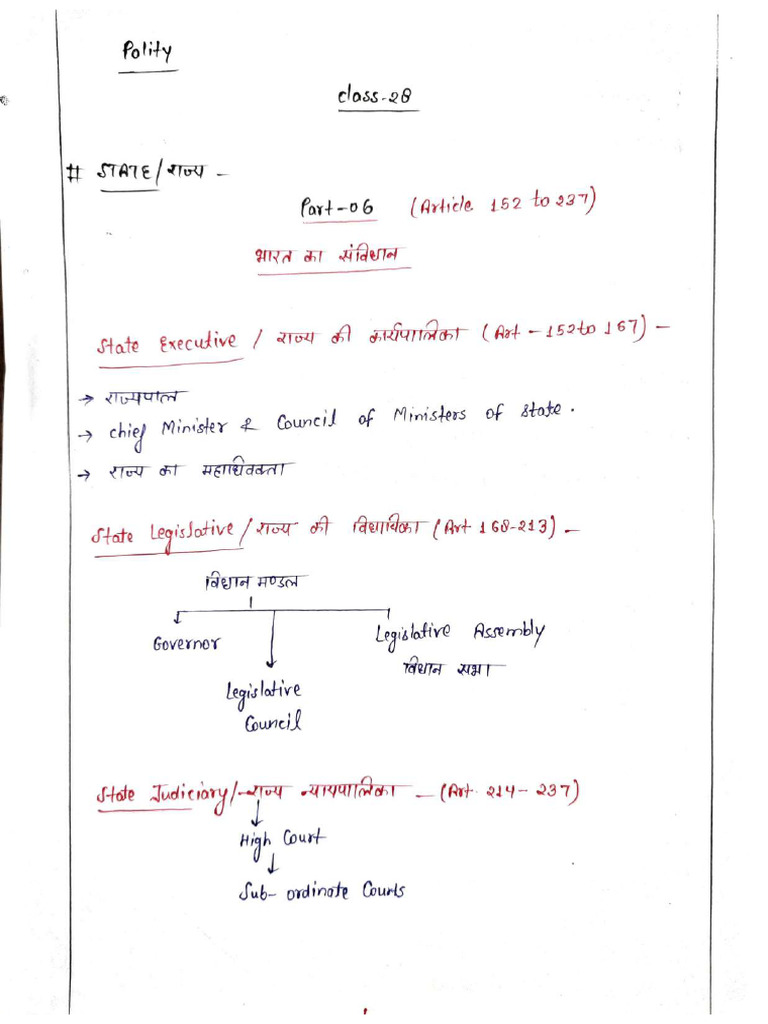 Polity
Class-28
# STATE/राज्य -
Part-06 (Article 152 to 237)
भारत का संविधान
State Executive / राज्य की कार्यपालिका (Art - 152 to 167) -
→ राज्यपाल
→ Chief Minister & Council of Ministers of State.
→ राज्य का महाधिवक्ता
State Legislative / राज्य की विधायिका (Art 168-213) -
विधान मण्डल
Governor
Legislative Assembly
विधान सभा
Legislative
Council
State Judiciary/-राज्य न्यायपालिका - (Art. 214- 237)
↓
High Court
↓
Sub- ordinate Courts